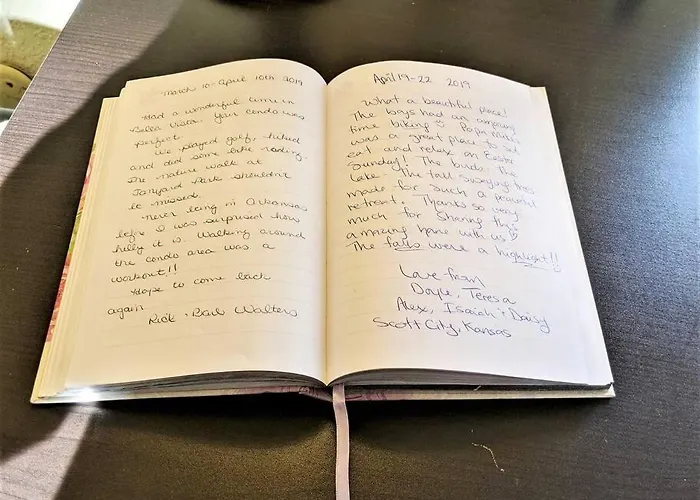 March 10 - April 10th 2019
Had a wonderful time in
Bella Vista. Your condo was
perfect.
We played golf, hiked
and did some bike riding.
The nature walk at
Tanyard Park shouldn't
be missed.
Never being in Arkansas
before I was surprised how
hilly it is. Walking around
the condo area was a
workout!!
Hope to come back
again
Rick & Walters
April 19-22 2019
What a beautiful place!
The boys had an amazing
time biking Papa Mike
was a great place to sit,
eat and relax on Easter
Sunday! The birds. The
lake. The tall swaying trees
made for such a peaceful
retreat. Thanks so very
much for sharing this
amazing home with us
The falls were a highlight!!
Love from
Doyle, Teresa
Alex, Isaiah & Daisy
Scott City, Kansas